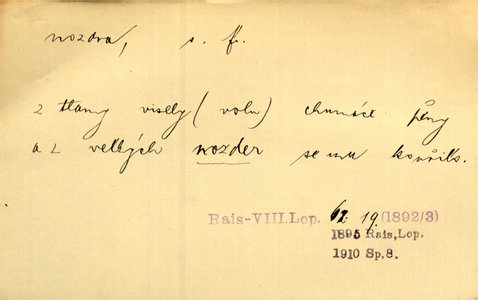 nozdra, s. f.
z tlamy visely (volu) chumáče pěny
a z velkých nozder se mu kouřilo.
Rais-VIII. Lop. 62. 19. (1892/3)
1895 Rais, Lop.
1910 Sp, 8.